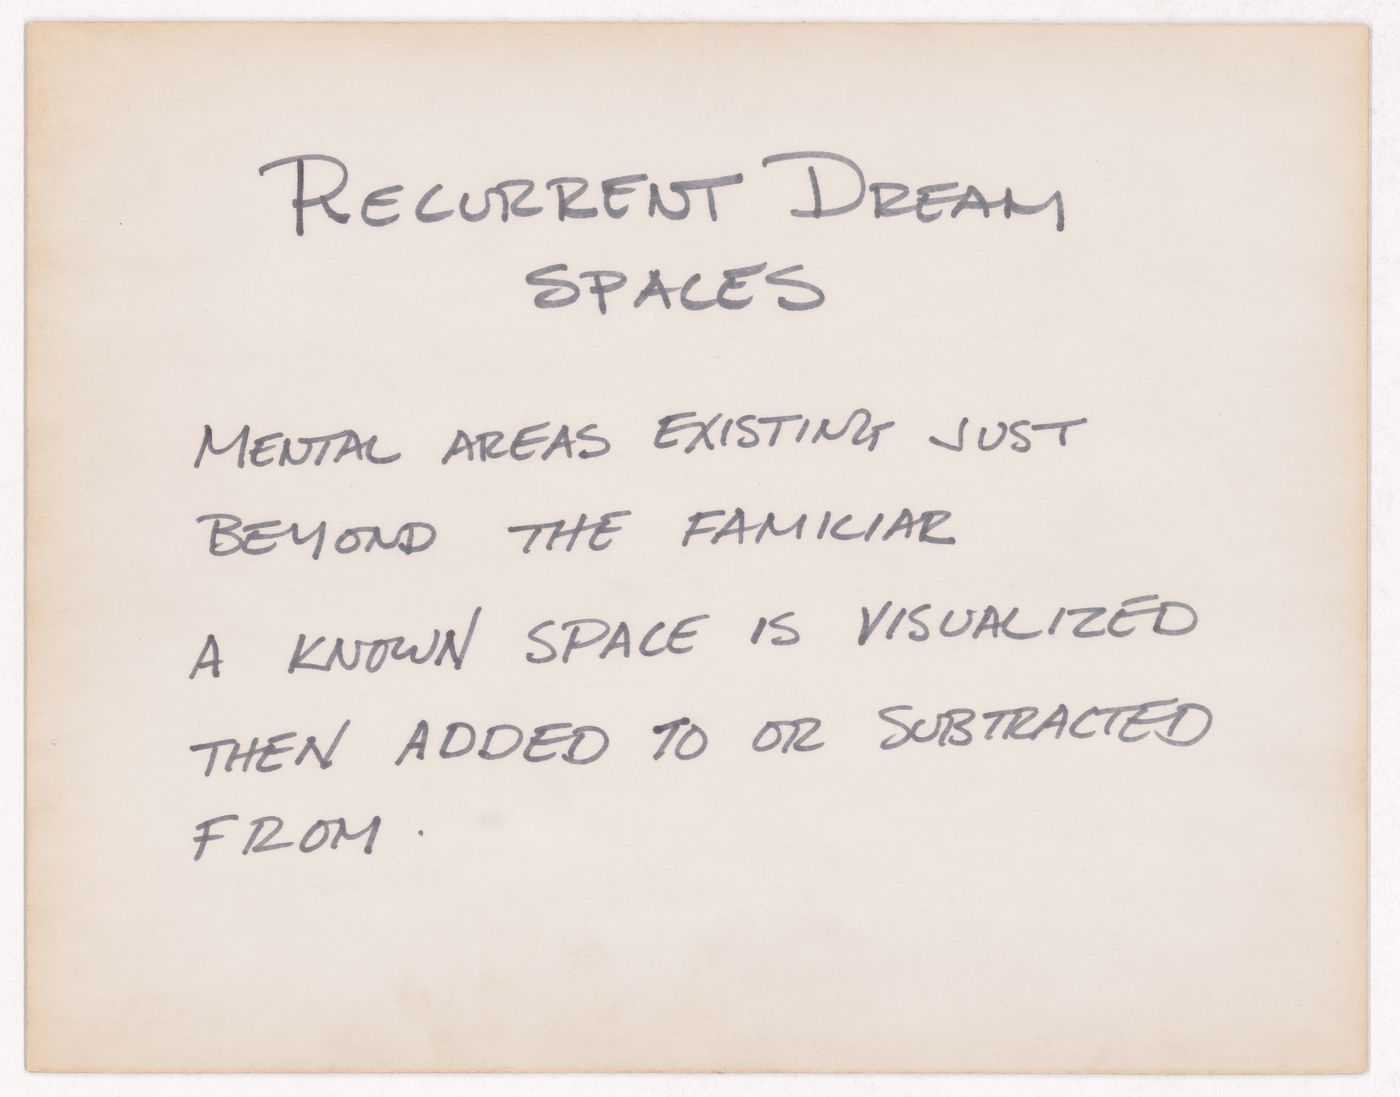 RECURRENT DREAM
SPACES
MENTAL AREAS EXISTING JUST
BEYOND THE FAMILIAR
A KNOWN SPACE IS VISUALIZED
THEN ADDED TO OR SUBTRACTED
FROM.